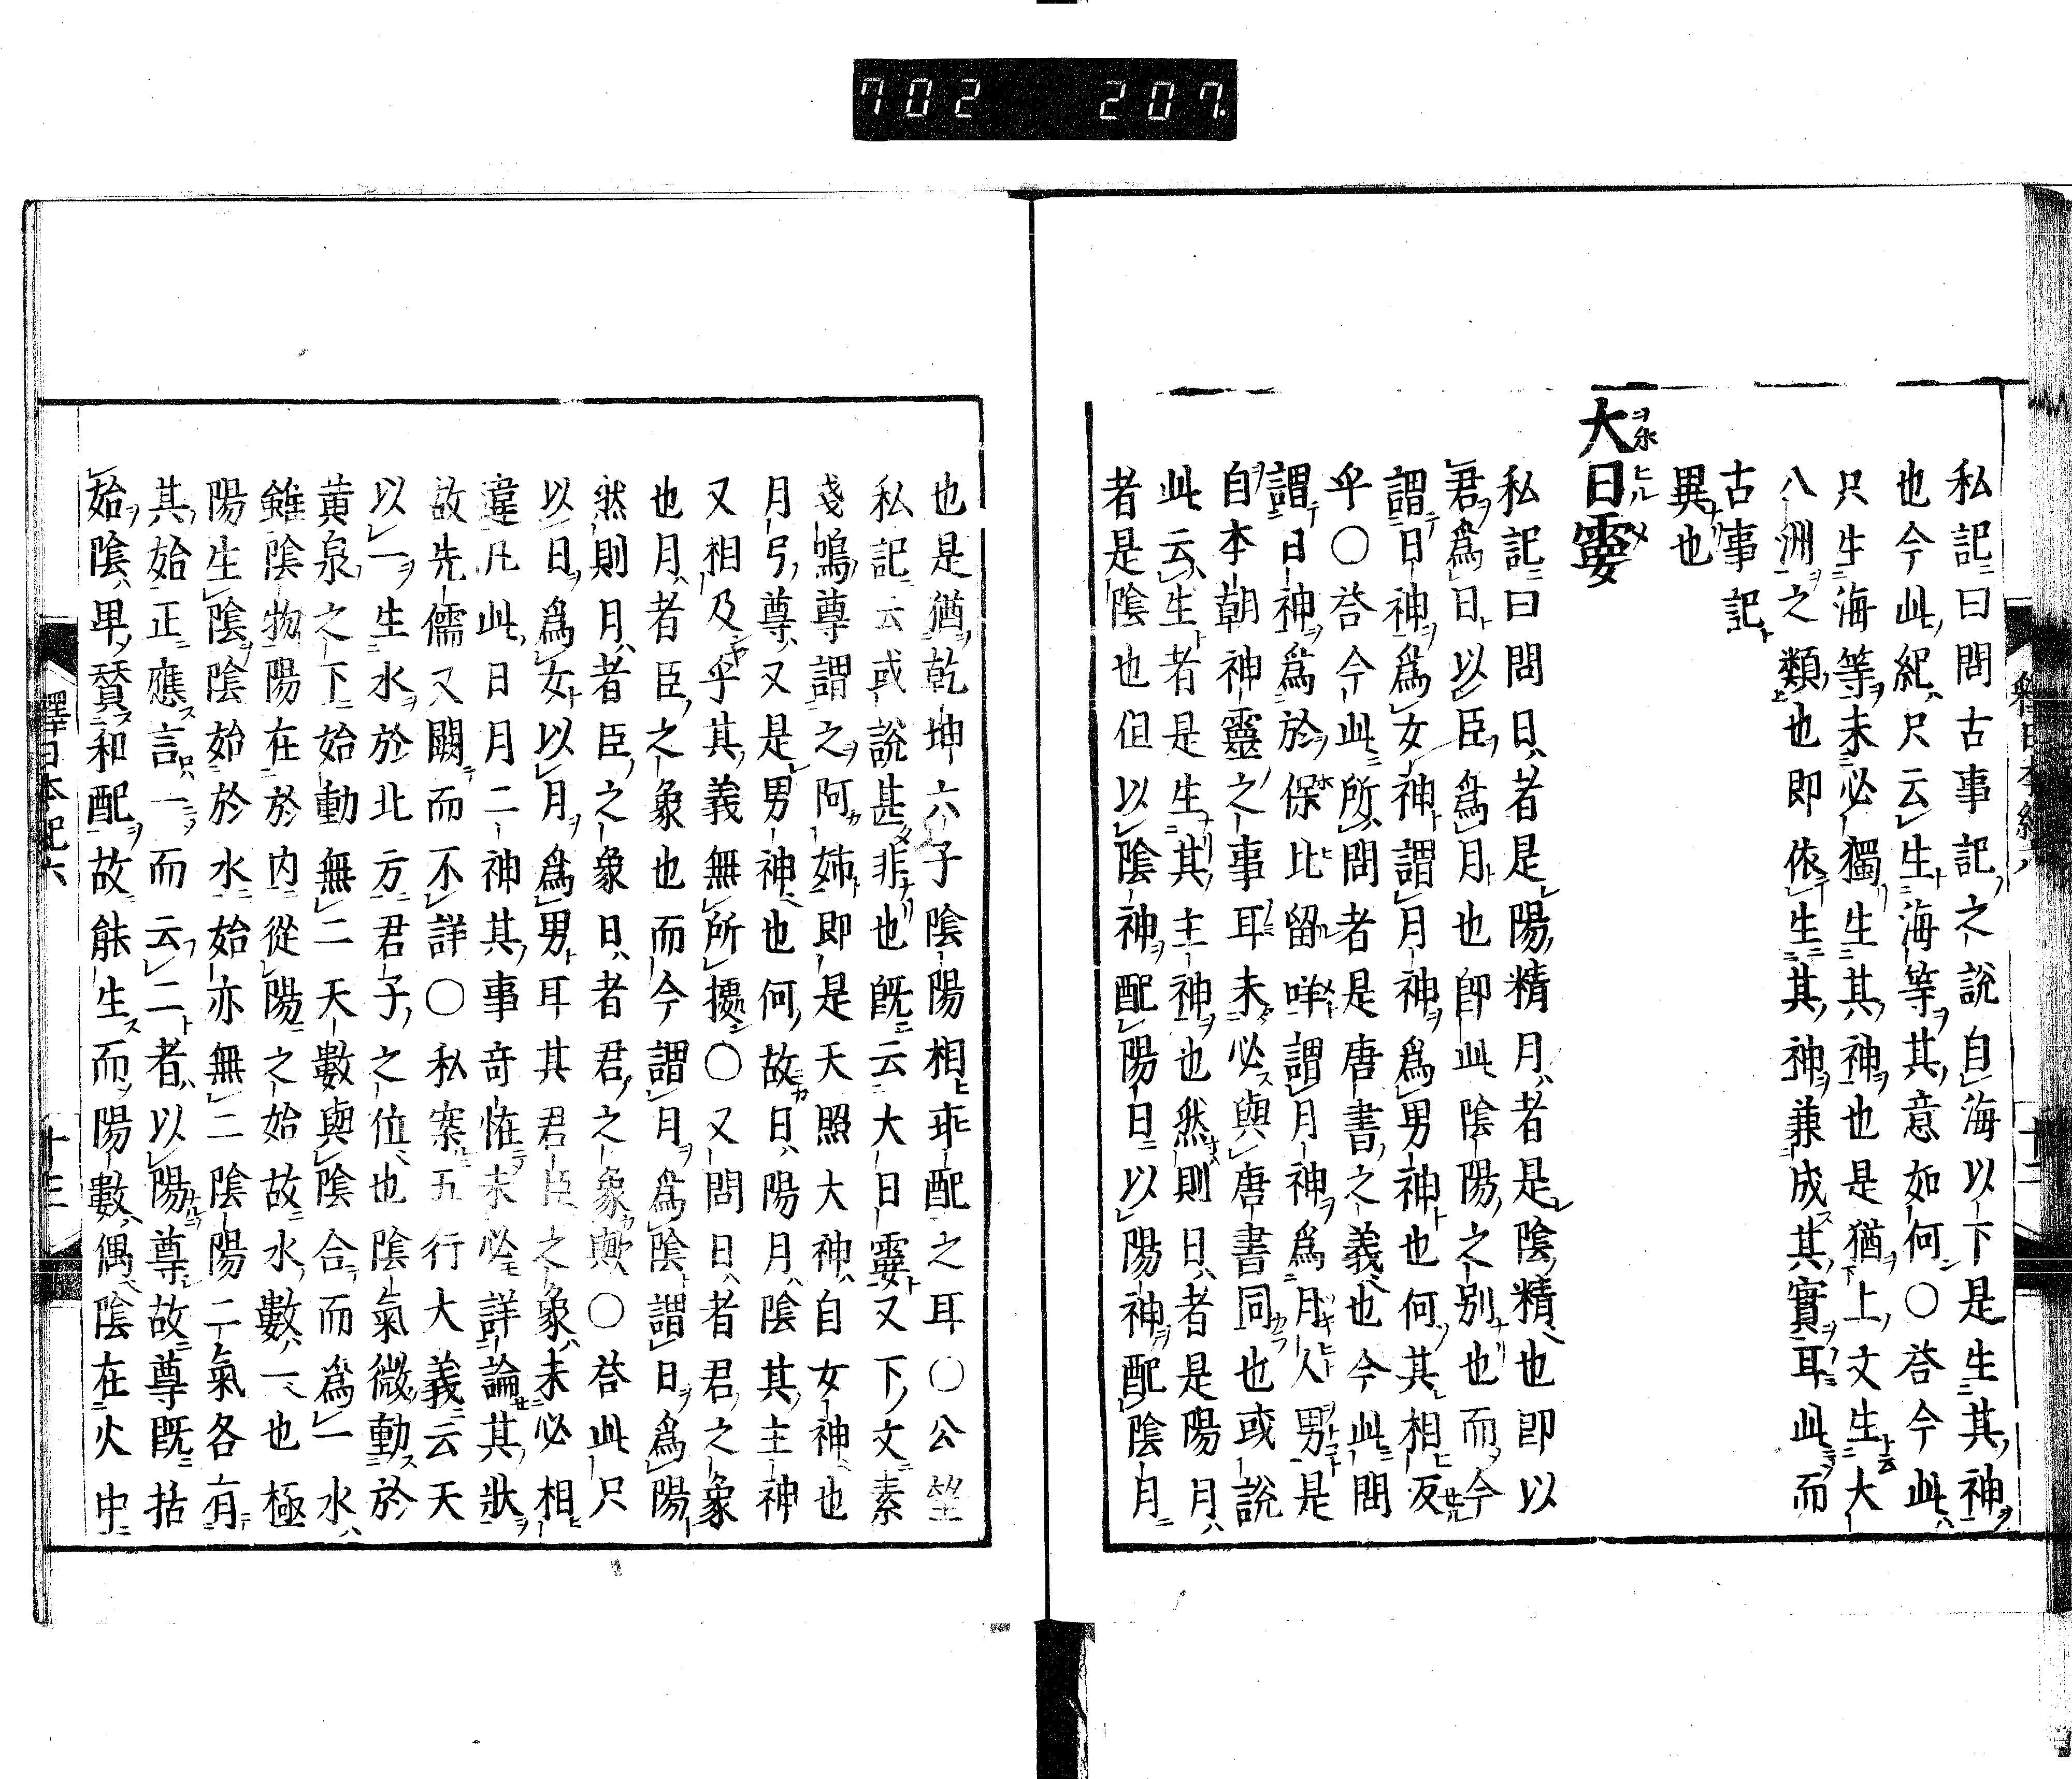 702 207
私記曰問古事記之說自海以下是生其神
也今此紀只云生海等其意如何〇荅今此
只生海等未必獨生其神也是猶上文生大
八洲之類也即依生其神兼成其實耳此而
古事記
異也
大日孁
私記曰問日者是陽精月者是陰精也即以
君爲日以臣爲月也即此陰陽之別也而今
謂日神爲女神謂月神爲男神也何其相反
乎〇荅今此所問者是唐書之義也今此問
謂日神爲於保比留咩謂月神爲月人男是
自本朝神靈之事耳未必與唐書同也或說
此云生者是生其主神也然則日者是陽月
者是陰也但以陰神配陽日以陽神配陰月
也是猶乾坤六子陰陽相乖配之耳〇公望
私記云或說甚非也既云大日孁又下文素
戔嗚尊謂之阿姉即是天照大神自女神也
月弓尊又是男神也何故日陽月陰其主神
又相及乎其義無所據〇又問日者君之象
也月者臣之象也而今謂月爲陰謂日爲陽
然則月者臣之象日者君之象歟〇荅此只
以日爲女以月爲男耳其君臣之象未必相
違凡此日月二神其事奇恠未必詳論其狀
故先儒又闕而不詳〇私案五行大義云天
以一生水於北方君子之位也陰氣微動於
黄泉之下始動無二天數與陰合而爲一水
雖陰物陽在於内從陽之始故水數一也極
陽生陰陰始於水始亦無二陰陽二氣各有
其始正應言一而云二者以陽尊故尊既括
始陰卑賛和配故能生而陽數偶陰在火中
釋日本紀六
十三